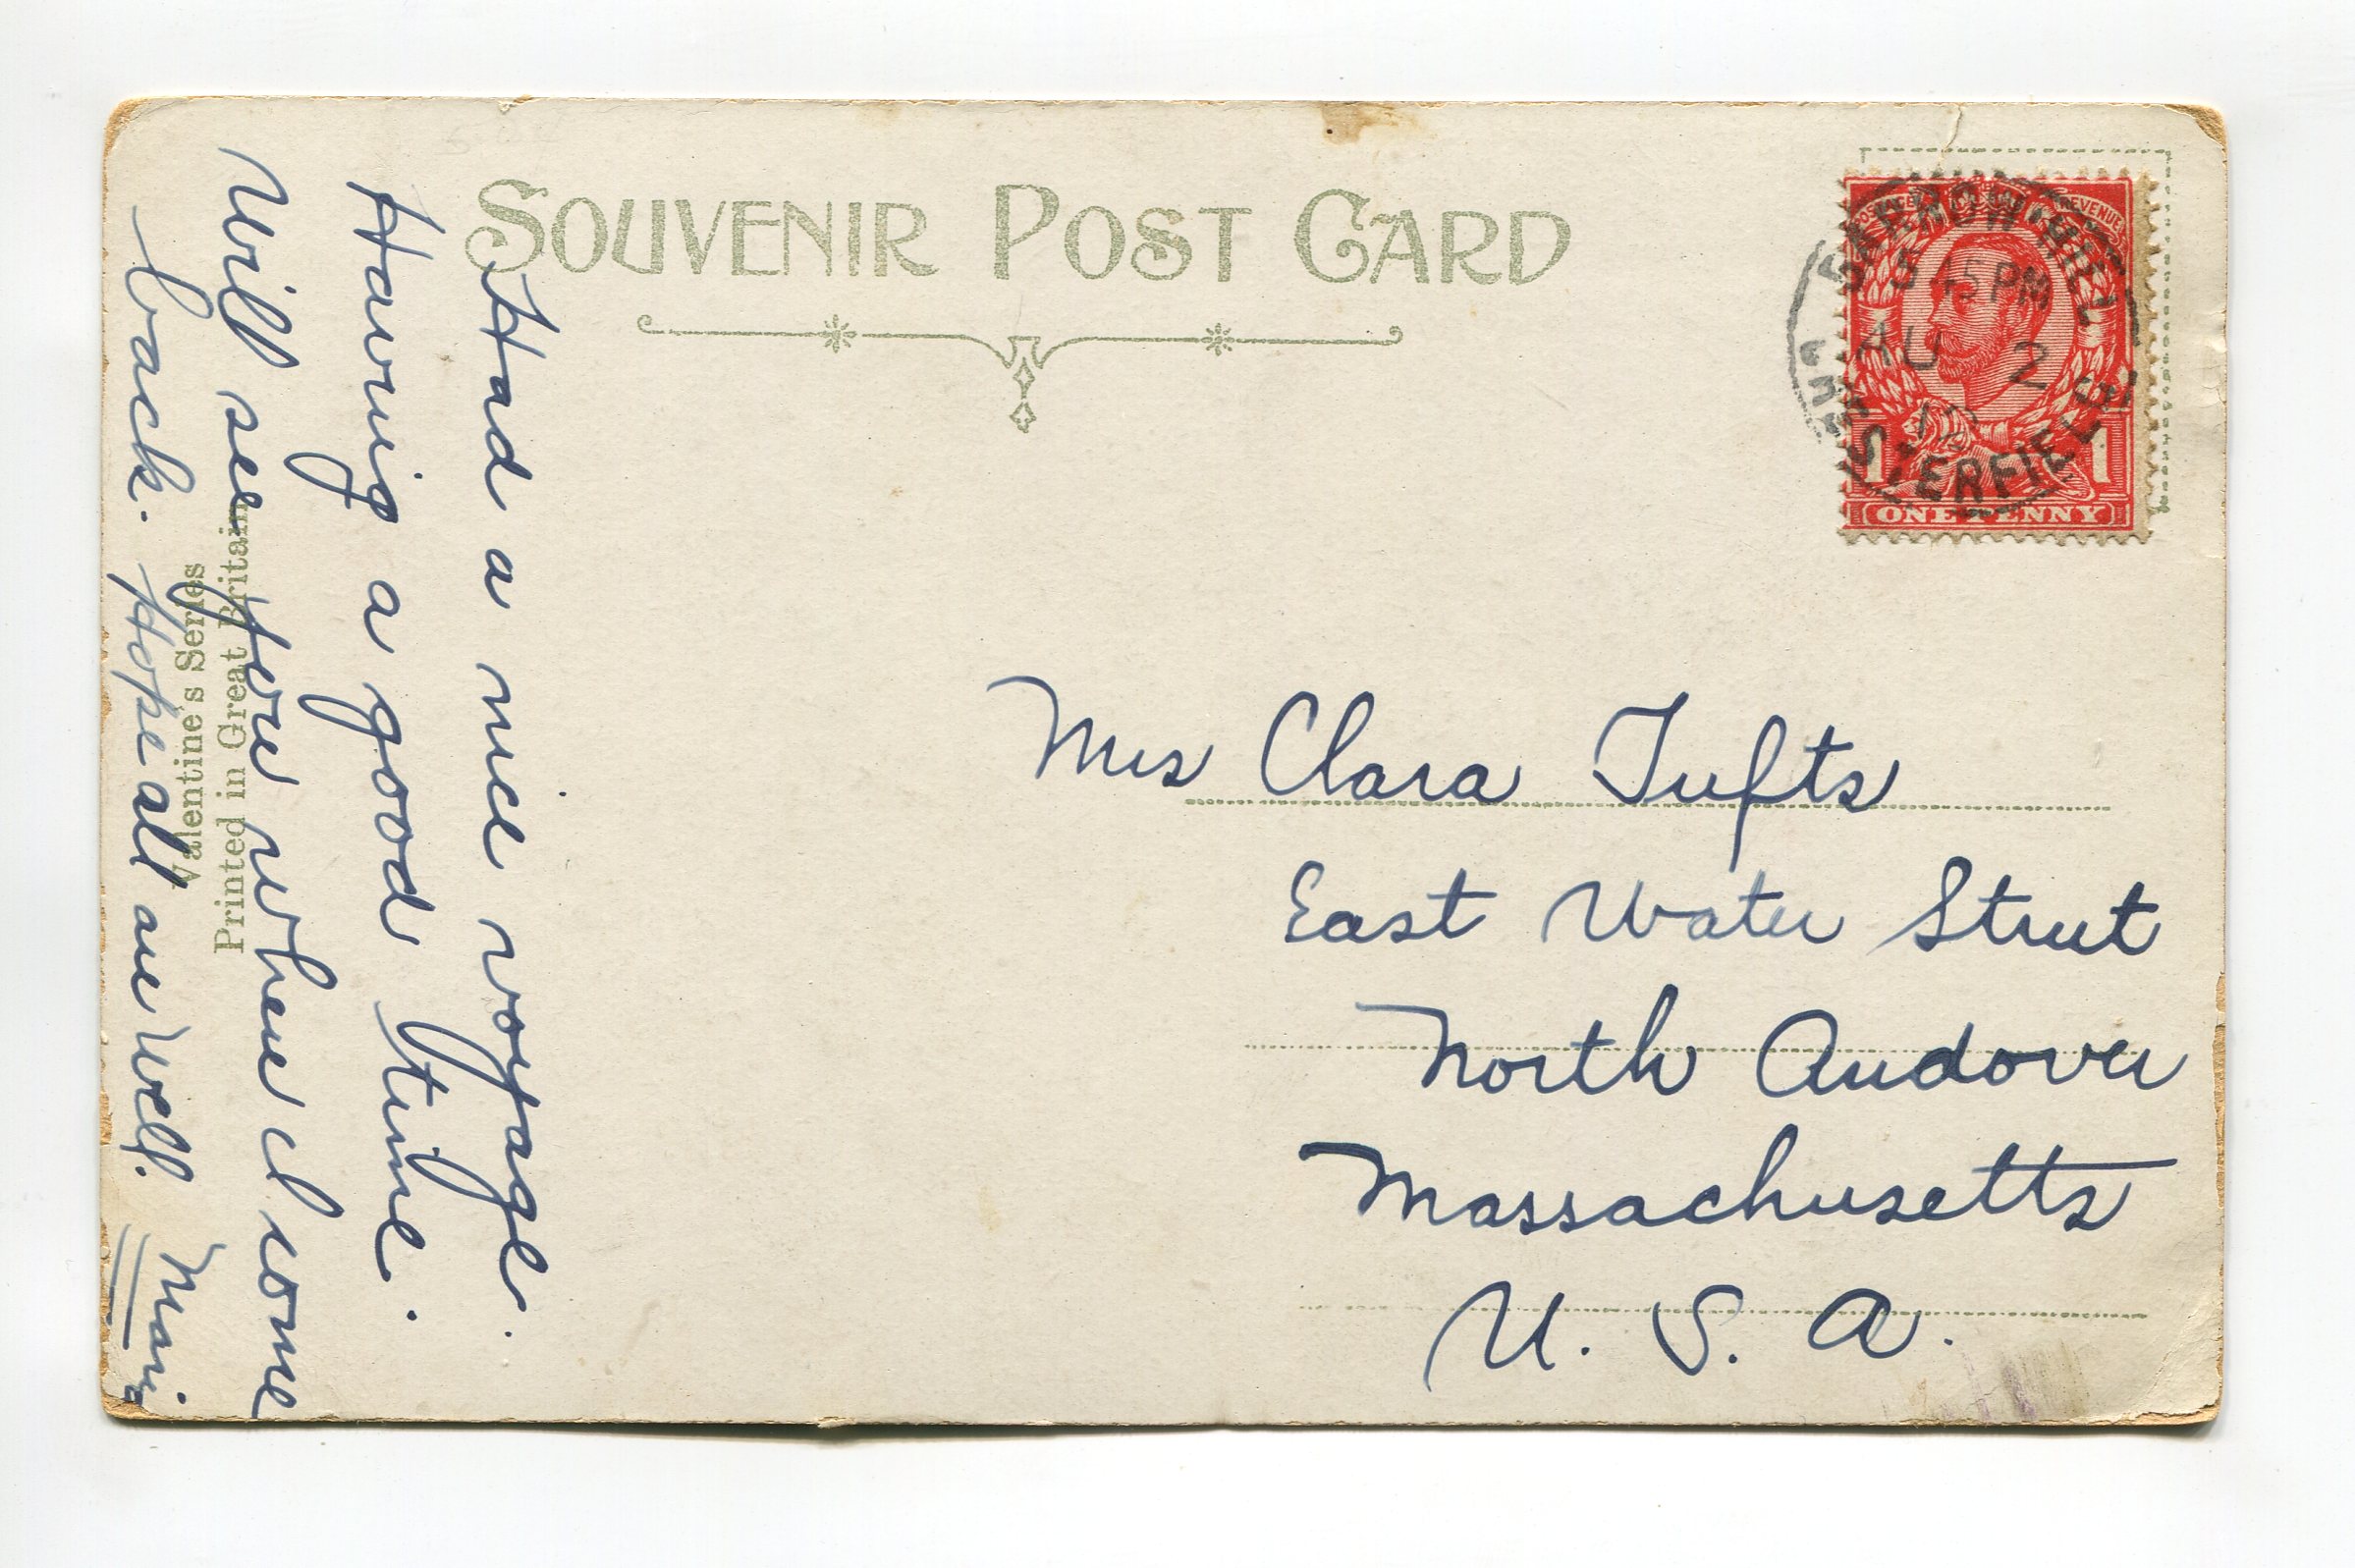 SOUVENIR POST CARD
BARROW HILL
5 45 PM
AU 2
12
CHESTERFIELD
POSTAGE REVENUE
1 1
ONE PENNY
Had a nice voyage.
Having a good time.
Will see you when I come
back. Hope all are well.
Maria
Valentine's Series
Printed in Great Britain
Mrs Clara Tufts
East Water Street
North Andover
Massachusetts
U. S. A.